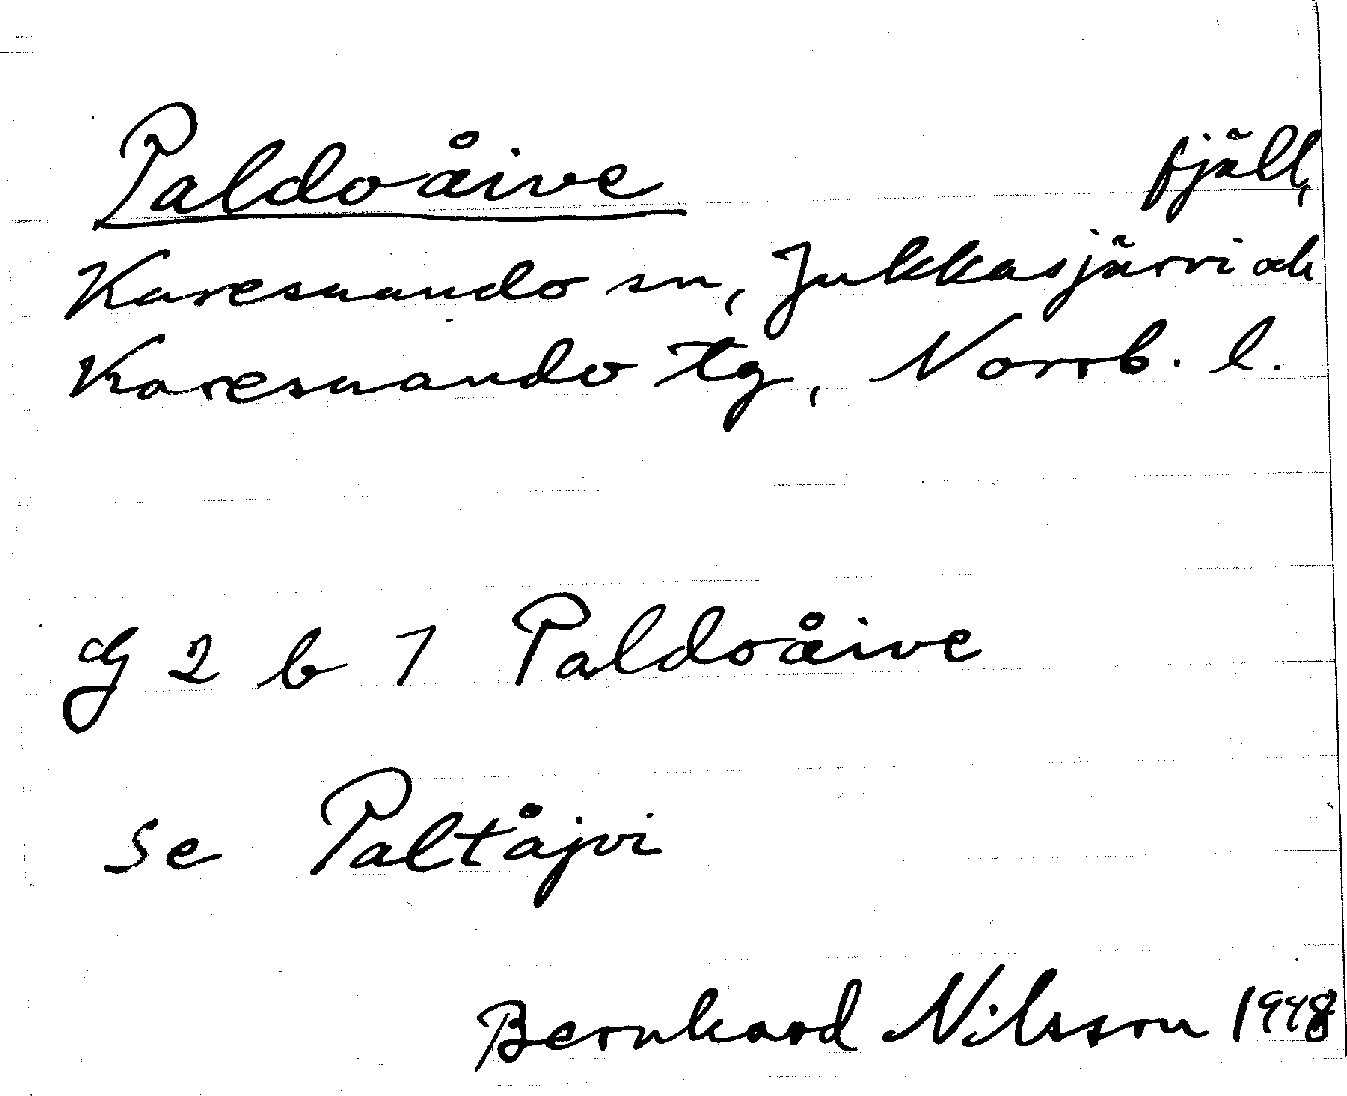 Paldoåive fjäll,
Karesuando sn, Jukkasjärvi och
Karesuando tg, Norrb. l.
G 2 b 1 Paldoåive
se Paltåjvi
Bernhard Nilsson 1948